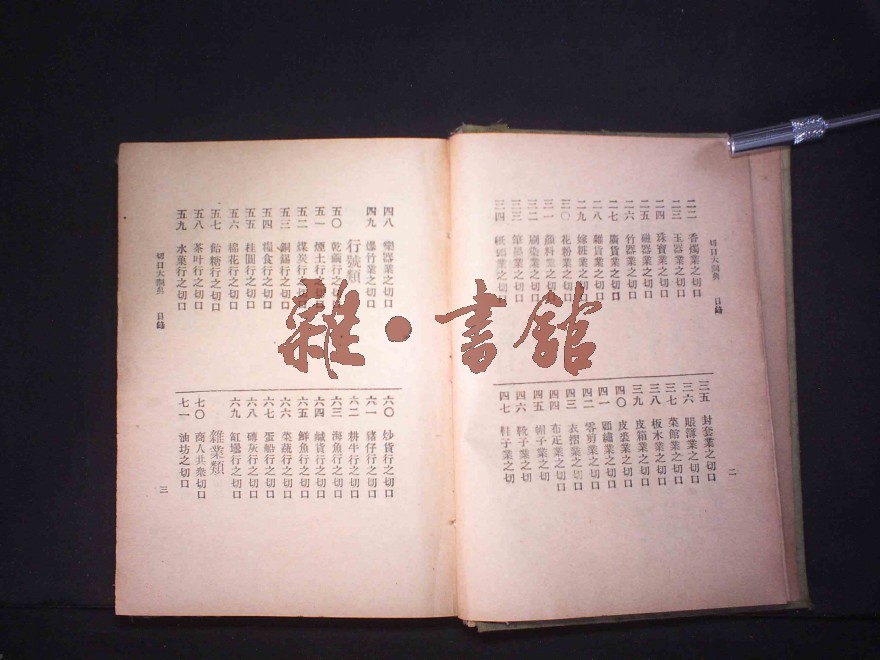 切口大詞典 目錄
二二 香燭業之切口
二三 玉器業之切口
二四 珠寶業之切口
二五 磁器業之切口
二六 竹器業之切口
二七 廣貨業之切口
二八 雜貨業之切口
二九 嫁粧業之切口
三〇 花粉業之切口
三一 顏料業之切口
三二 刷染業之切口
三三 筆墨業之切口
三四 紙 業之切口
三五 封套業之切口
三六 賬簿業之切口
三七 菜館業之切口
三八 板木業之切口
三九 皮箱業之切口
四〇 皮裘業之切口
四一 顧繡業之切口
四二 零剪業之切口
四三 衣摺業之切口
四四 布疋業之切口
四五 帽子業之切口
四六 靴子業之切
四七 鞋子業之切
二
四八 樂器業之切口
四九 爆竹業之切口
行號類
五〇 乾繭行之切口
五一 煙土行之切口
五二 煤炭行之切口
五三 銅錫行之切口
五四 糧食行之切口
五五 桂圓行之切口
五六 棉花行之切口
五七 飴糖行之切口
五八 茶叶行之切口
五九 水菓行之切口
切口大詞典 目錄
六〇 炒貨行之切口
六一 豬仔行之切口
六二 耕牛行之切口
六三 海魚行之切口
六四 鹹貨行之切口
六五 鮮魚行之切口
六六 菜蔬行之切口
六七 蛋船行之切口
六八 磚灰行之切口
六九 缸罎行之切口
雜業類
七〇 商人共衆切口
七一 油坊之切口
三
雜·書館